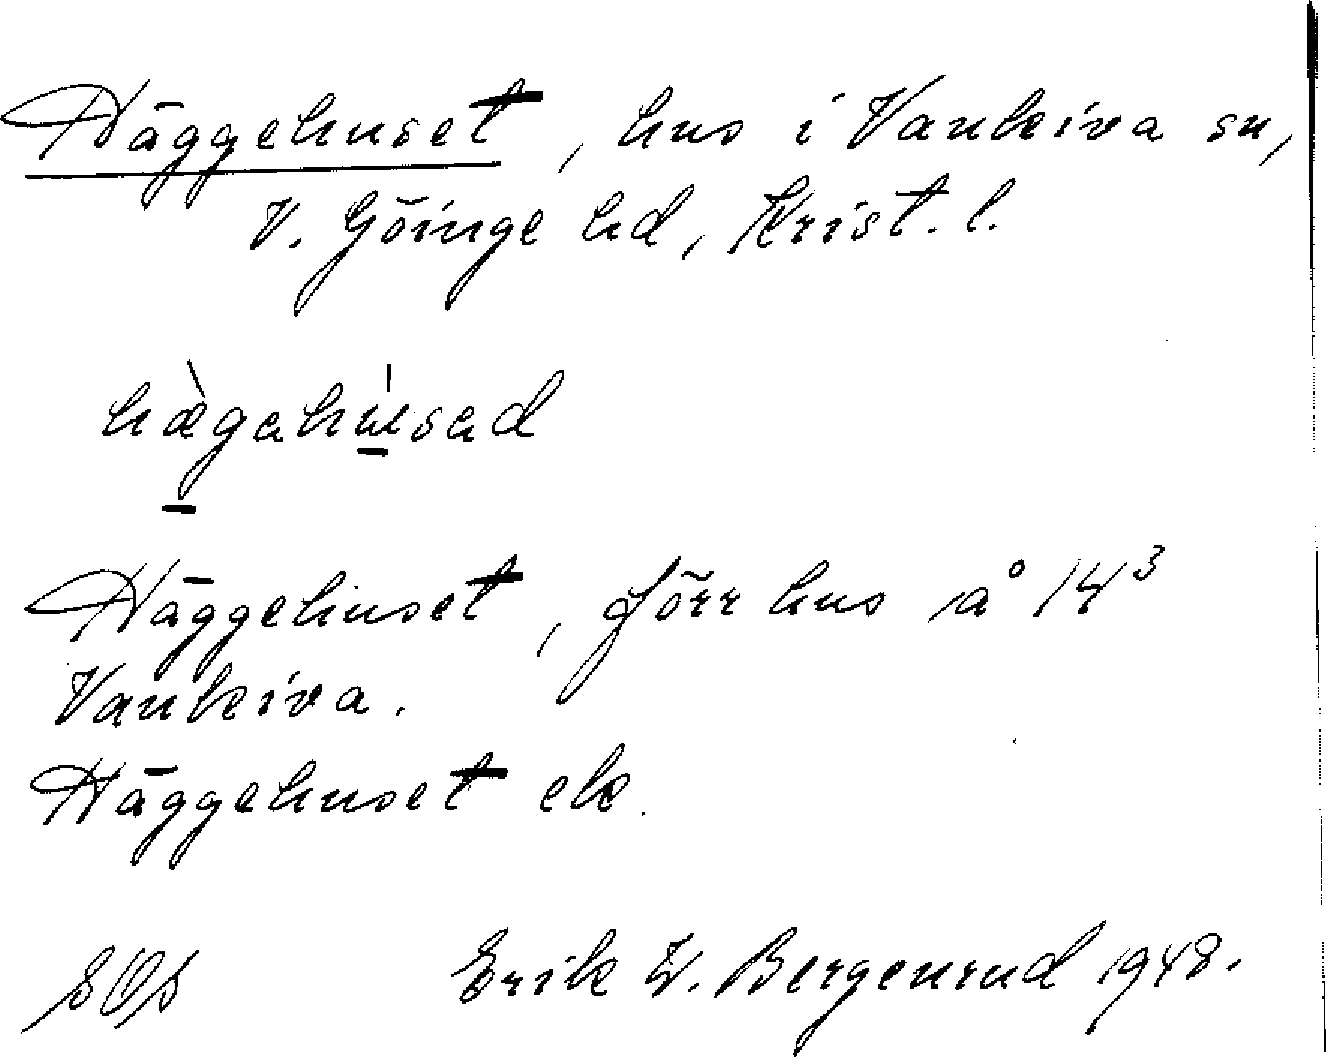 Häggehuset, hus i Vankiva sn,
V. Göinge hd, Krist. l.
hæ̀gahúsad
Häggehuset, förr hus å 14³
Vankiva.
Häggehuset ek.
SOS Erik W. Bergenrud 1948.